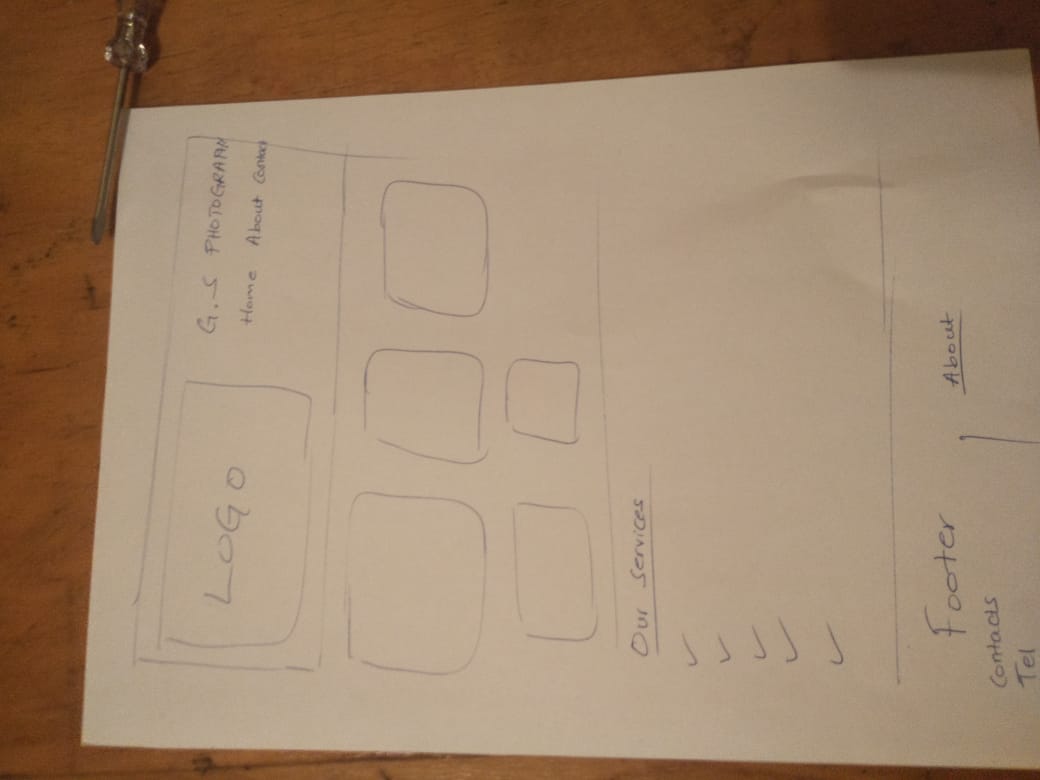 LOGO
G.S PHOTOGRAPH
Home About Contact
Our Services
Footer
About
Contacts
Tel